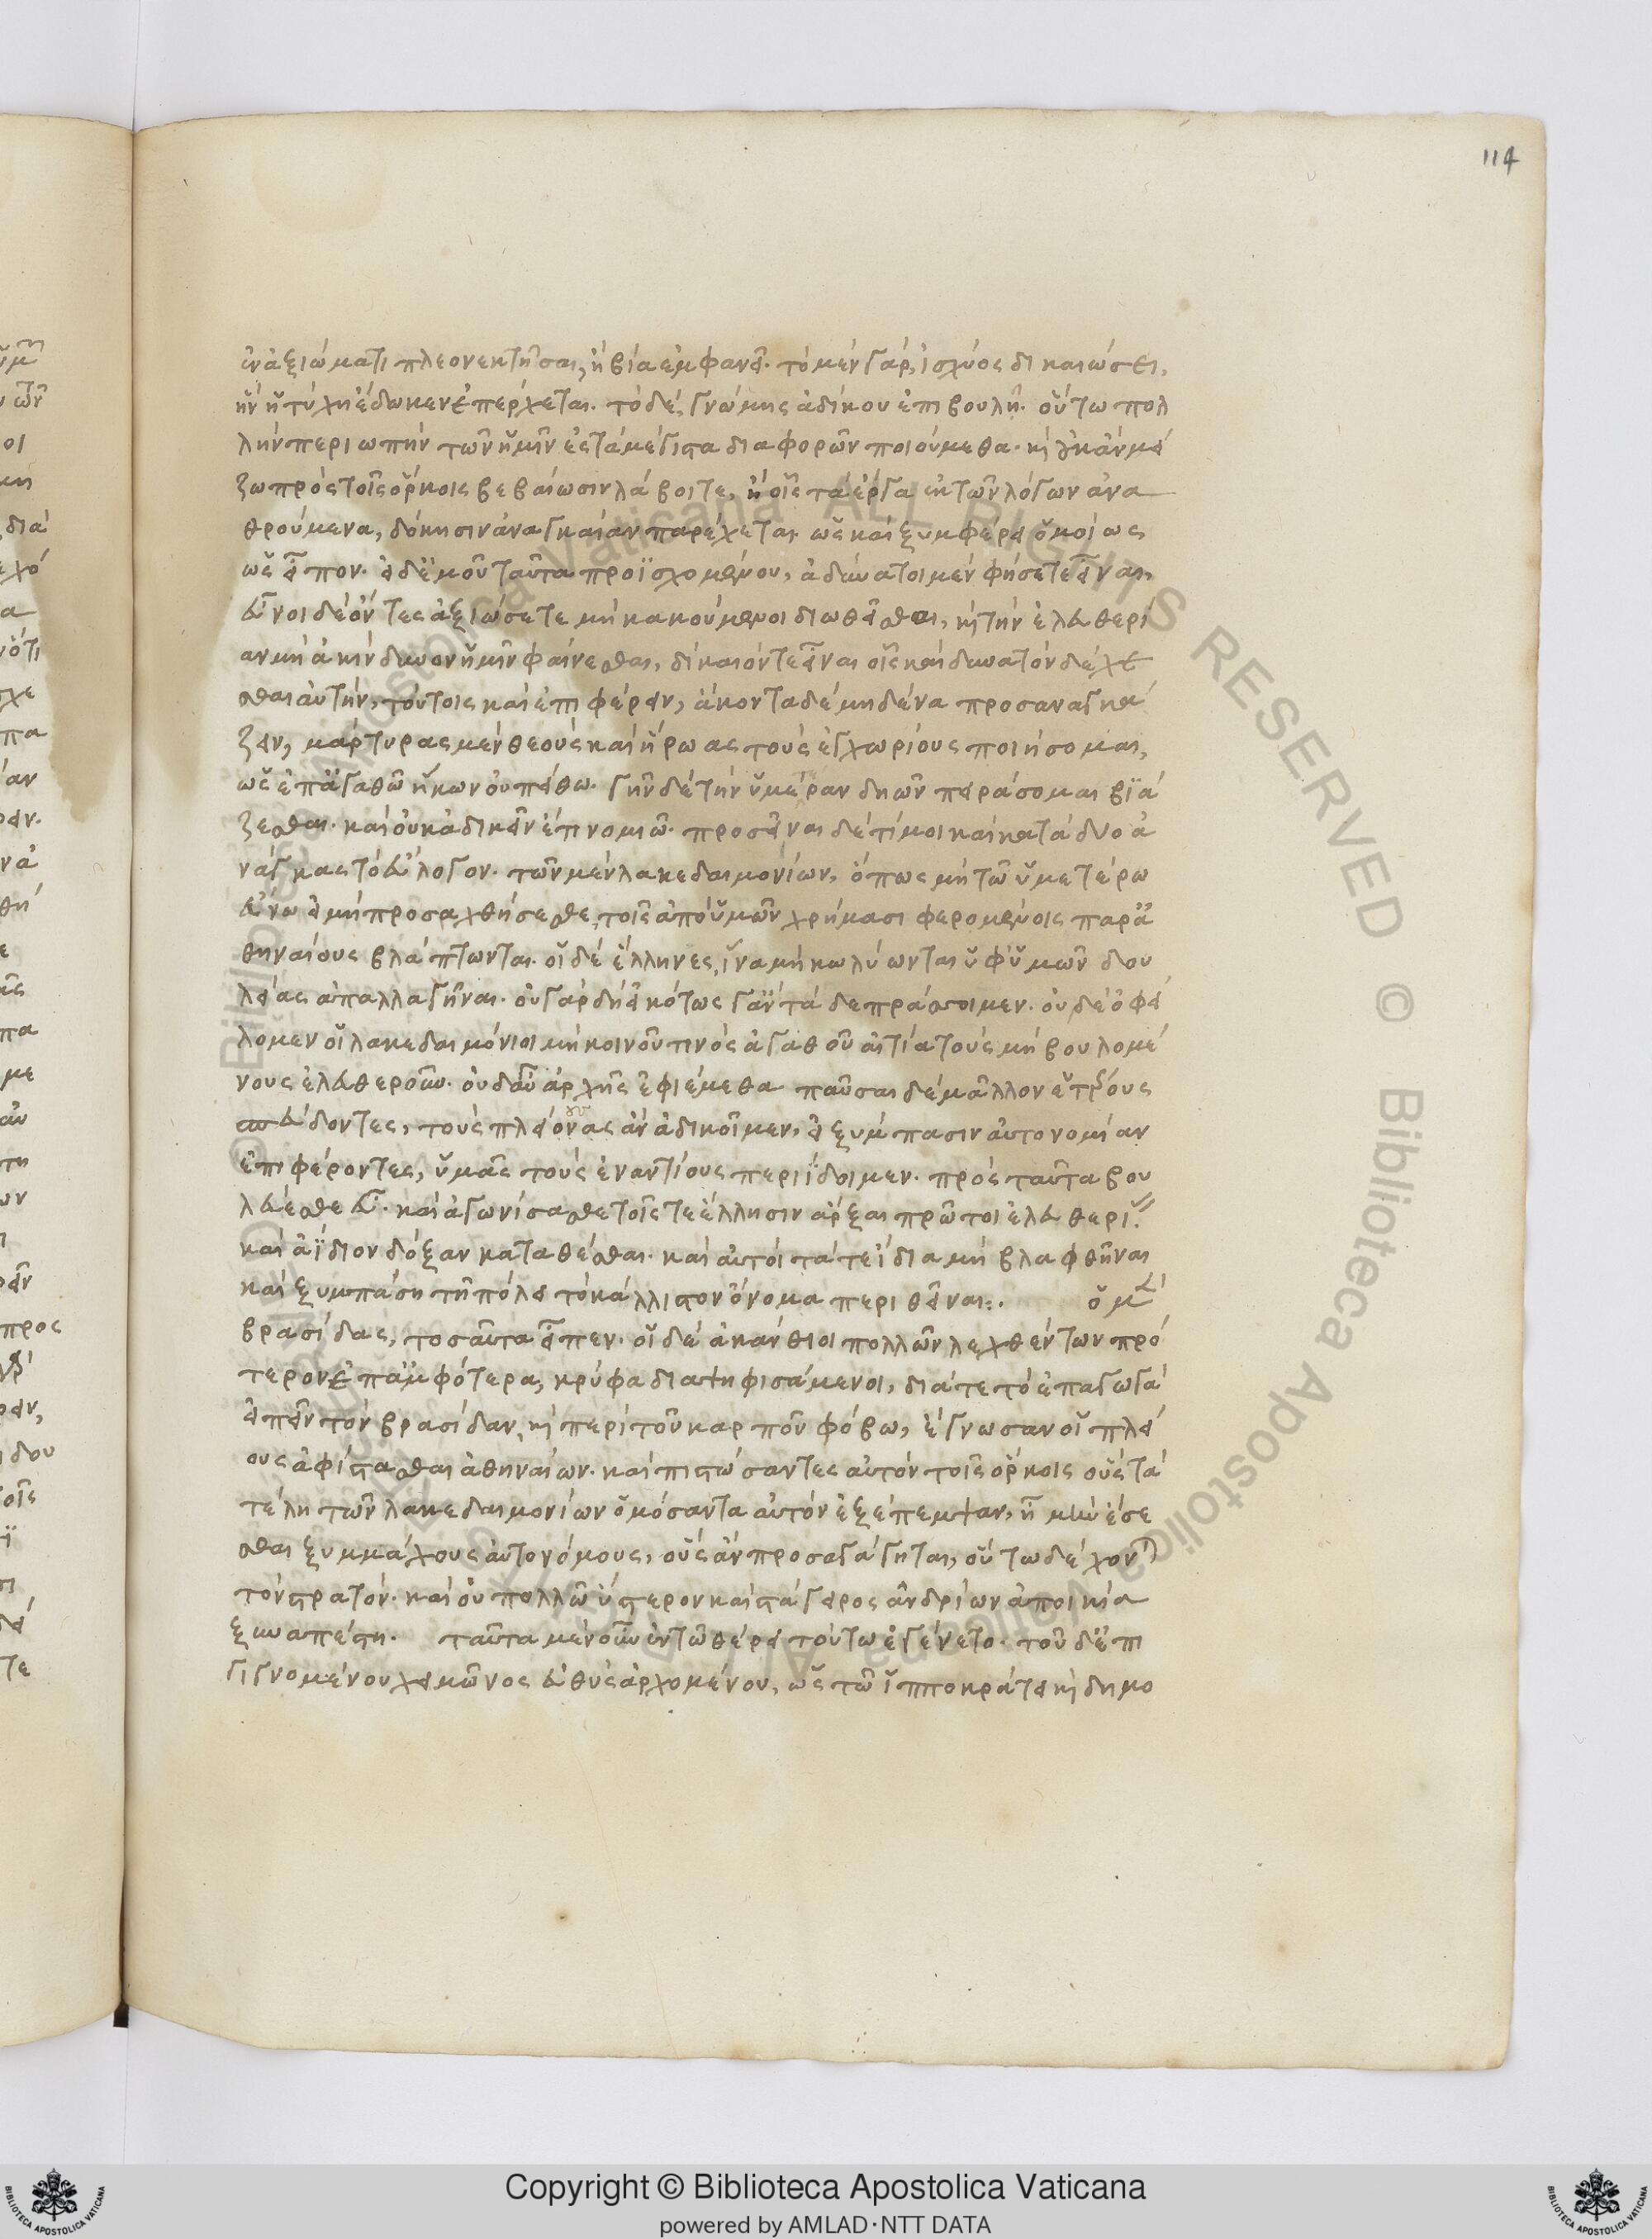 114
ἐν ἀξιώματι πλεονεκτῆσαι, ἢ βία ἐμφανεῖ. τὸ μὲν γὰρ, ἰσχύος δικαιώσει,
ἣν ἡ τύχη ἔδωκεν ἐπέρχεται. τὸ δὲ, γνώμης ἀδίκου ἐπιβουλῆ. οὕτω πολ
λὴν περιωπὴν τῶν ἡμῖν ἐς τὰ μέγιστα διαφορῶν ποιούμεθα. κὶ οὐκ ἂν μεί
ζω πρὸς τοῖς ὅρκοις βεβαίωσιν λάβοιτε, ἢ οἷς τὰ ἔργα ἐκ τῶν λόγων ἀνα
θρούμενα, δόκησιν ἀναγκαίαν παρέχεται ὡς καὶ ξυμφέρει ὁμοίως
ὡς εἶπον. εἰ δ' ἐμοῦ ταῦτα προϊσχομένου, ἀδύνατοι μὲν φήσετε εἶναι,
εὖνοι δὲ ὄντες ἀξιώσετε μὴ κακούμενοι διωθεῖσθαι, κὶ τὴν ἐλευθερί
αν μὴ ἀκίνδυνον ἡμῖν φαίνεσθαι, δίκαιόν τε εἶναι οἷς καὶ δυνατὸν δέχε
σθαι αὐτὴν, τούτοις καὶ ἐπιφέρειν, ἄκοντα δὲ μηδένα προσαναγκά
ζειν, μάρτυρας μὲν θεοὺς καὶ ἥρωας τοὺς ἐγχωρίους ποιήσομαι,
ὡς ἐπ' ἀγαθῶ ἥκων οὐ πείθω. γῆν δὲ τὴν ὑμετέραν δηῶν πειράσομαι βιά
ζεσθαι. καὶ οὐκ ἀδικεῖν ἔτι νομιῶ. προσεῖναι δέ τί μοι καὶ κατὰ δύο ἀ
νάγκας τὸ εὔλογον. τῶν μὲν λακεδαιμονίων, ὅπως μὴ τῶ ὑμετέρω
εὔνω εἰ μὴ προσαχθήσεσθε, τοῖς ἀπὸ ὑμῶν χρήμασι φερομένοις παρ' ἀ
θηναίους βλάπτωνται. οἱ δὲ ἕλληνες, ἵνα μὴ κωλύωνται ὑφ' ὑμῶν δου
λείας ἀπαλλαγῆναι. οὐ γὰρ δὴ εἰκότως γ' ἂν τάδε πράσσοιμεν. οὐδὲ ὀφεί
λομεν οἱ λακεδαιμόνιοι μὴ κοινοῦ τινὸς ἀγαθοῦ αἰτία τοὺς μὴ βουλομέ
νους ἐλευθεροῦν. οὐδ' αὖ ἀρχῆς ἐφιέμεθα παῦσαι δὲ μᾶλλον ἑτέρους
σπεύδοντες, τοὺς πλείονας ἂν ἀδικοῖμεν, εἰ ξύμπασιν αὐτονομίαν
ἐπιφέροντες, ὑμᾶς τοὺς ἐναντίους περιίδοιμεν. πρὸς ταῦτα βου
λεύεσθε εὖ. καὶ ἀγωνίσασθε τοῖς τε ἕλλησιν ἄρξαι πρῶτοι ἐλευθερίας
καὶ ἀΐδιον δόξαν καταθέσθαι. καὶ αὐτοὶ τά τε ἴδια μὴ βλαφθῆναι
καὶ ξυμπάση τῆ πόλει τὸ κάλλιστον ὄνομα περιθεῖναι:. ὁ μὲν
βρασίδας, τοσαῦτα εἶπεν. οἱ δὲ ἀκάνθιοι πολλῶν λεχθέντων πρό
τερον ἐπ' ἀμφότερα, κρύφα διαψηφισάμενοι, διά τε τὸ ἐπαγωγὰ
εἰπεῖν τὸν βρασίδαν, κὶ περὶ τοῦ καρποῦ φόβω, ἔγνωσαν οἱ πλεί
ους ἀφίστασθαι ἀθηναίων. καὶ πιστώσαντες αὐτὸν τοῖς ὅρκοις οὓς τὰ
τέλη τῶν λακεδαιμονίων ὀμόσαντα αὐτὸν ἐξέπεμψαν, ἦ μὴν ἔσε
σθαι ξυμμάχους αὐτονόμους, οὓς ἂν προσαγάγηται, οὕτω δέχονται
τὸν στρατόν. καὶ οὐ πολλῶ ὕστερον καὶ στάγειρος ἀνδρίων ἀποικία
ξυναπέστη. ταῦτα μὲν οὖν ἐν τῶ θέρει τούτω ἐγένετο. τοῦ δ' ἐπι
γιγνομένου χειμῶνος εὐθὺς ἀρχομένου, ὡς τῶ ἱπποκράτει κὶ δημο
Copyright © Biblioteca Apostolica Vaticana
powered by AMLAD·NTT DATA